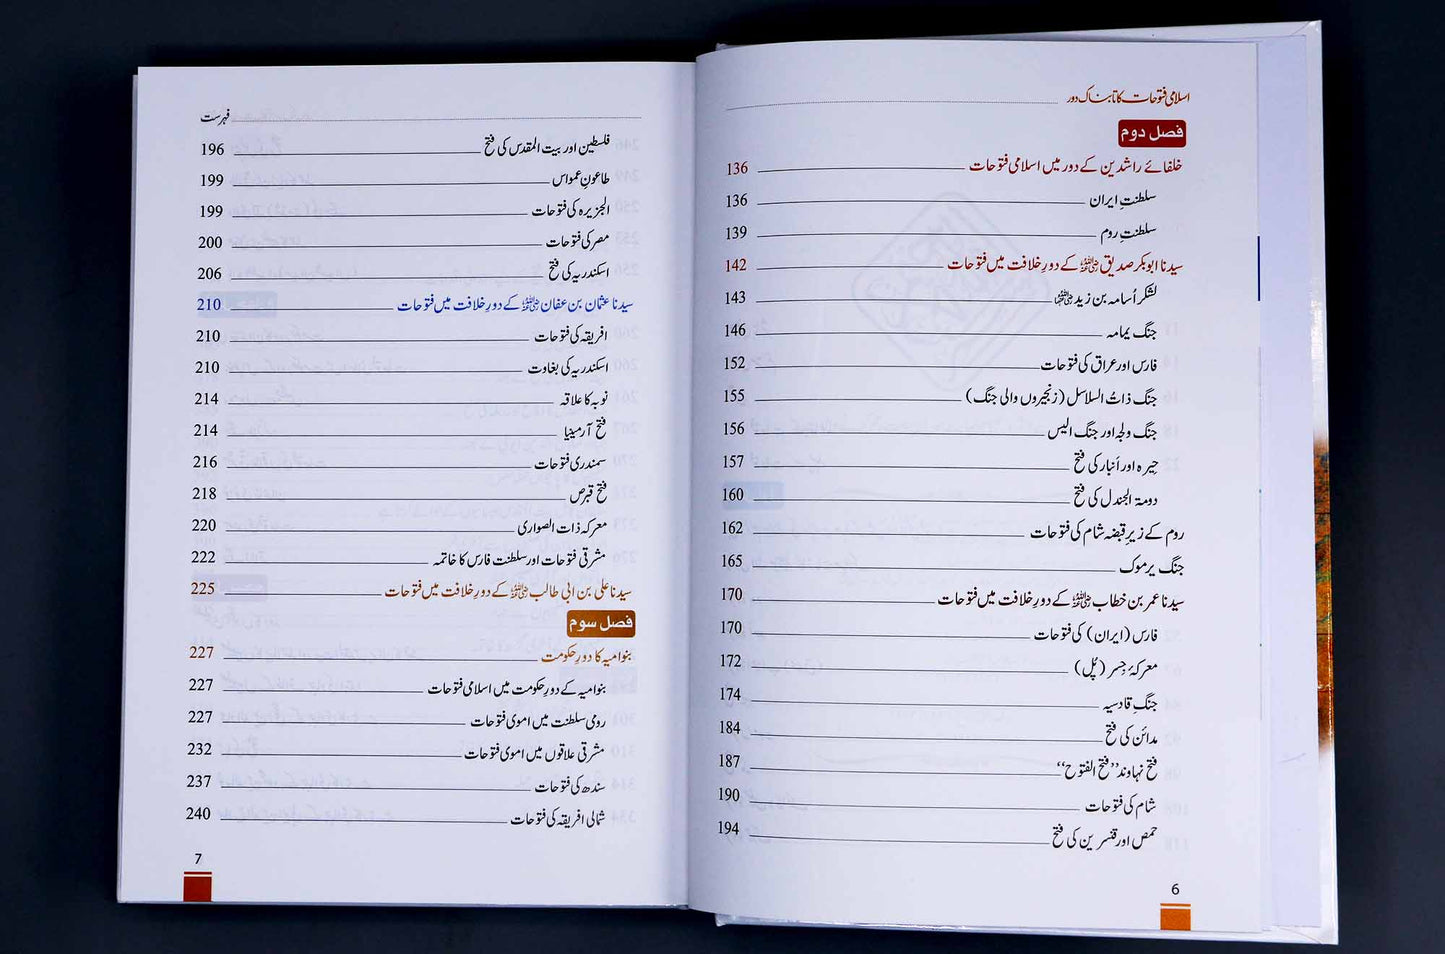 اسلامی فتوحات کا تابناک دور
فصل دوم
خلفائے راشدین کے دور میں اسلامی فتوحات 136
سلطنتِ ایران 136
سلطنتِ روم 139
سیدنا ابوبکر صدیق رضی اللہ عنہ کے دورِ خلافت میں فتوحات 142
لشکرِ اُسامہ بن زید رضی اللہ عنہما 143
جنگ یمامہ 146
فارس اور عراق کی فتوحات 152
جنگ ذاتُ السلاسل (زنجیروں والی جنگ) 155
جنگ ولجہ اور جنگ الیس 156
حیرہ اور اَنبار کی فتح 157
دومۃ الجندل کی فتح 160
روم کے زیرِ قبضہ شام کی فتوحات 162
جنگ یرموک 165
سیدنا عمر بن خطاب رضی اللہ عنہ کے دورِ خلافت میں فتوحات 170
فارس (ایران) کی فتوحات 170
معرکۂ جِسر (پُل) 172
جنگِ قادسیہ 174
مدائن کی فتح 184
فتح نہاوند ’’فتح الفتوح‘‘ 187
شام کی فتوحات 190
حمص اور قنسرین کی فتح 194
6
فہرست
فلسطین اور بیت المقدس کی فتح 196
طاعونِ عمواس 199
الجزیرہ کی فتوحات 199
مصر کی فتوحات 200
اسکندریہ کی فتح 206
سیدنا عثمان بن عفان رضی اللہ عنہ کے دورِ خلافت میں فتوحات 210
افریقہ کی فتوحات 210
اسکندریہ کی بغاوت 210
نوبہ کا علاقہ 214
فتح آرمینیا 214
سمندری فتوحات 216
فتح قبرص 218
معرکہ ذات الصواری 220
مشرقی فتوحات اور سلطنت فارس کا خاتمہ 222
سیدنا علی بن ابی طالب رضی اللہ عنہ کے دورِ خلافت میں فتوحات 225
فصل سوم
بنوامیہ کا دورِ حکومت 227
بنوامیہ کے دورِ حکومت میں اسلامی فتوحات 227
رومی سلطنت میں اموی فتوحات 227
مشرقی علاقوں میں اموی فتوحات 232
سندھ کی فتوحات 237
شمالی افریقہ کی فتوحات 240
7